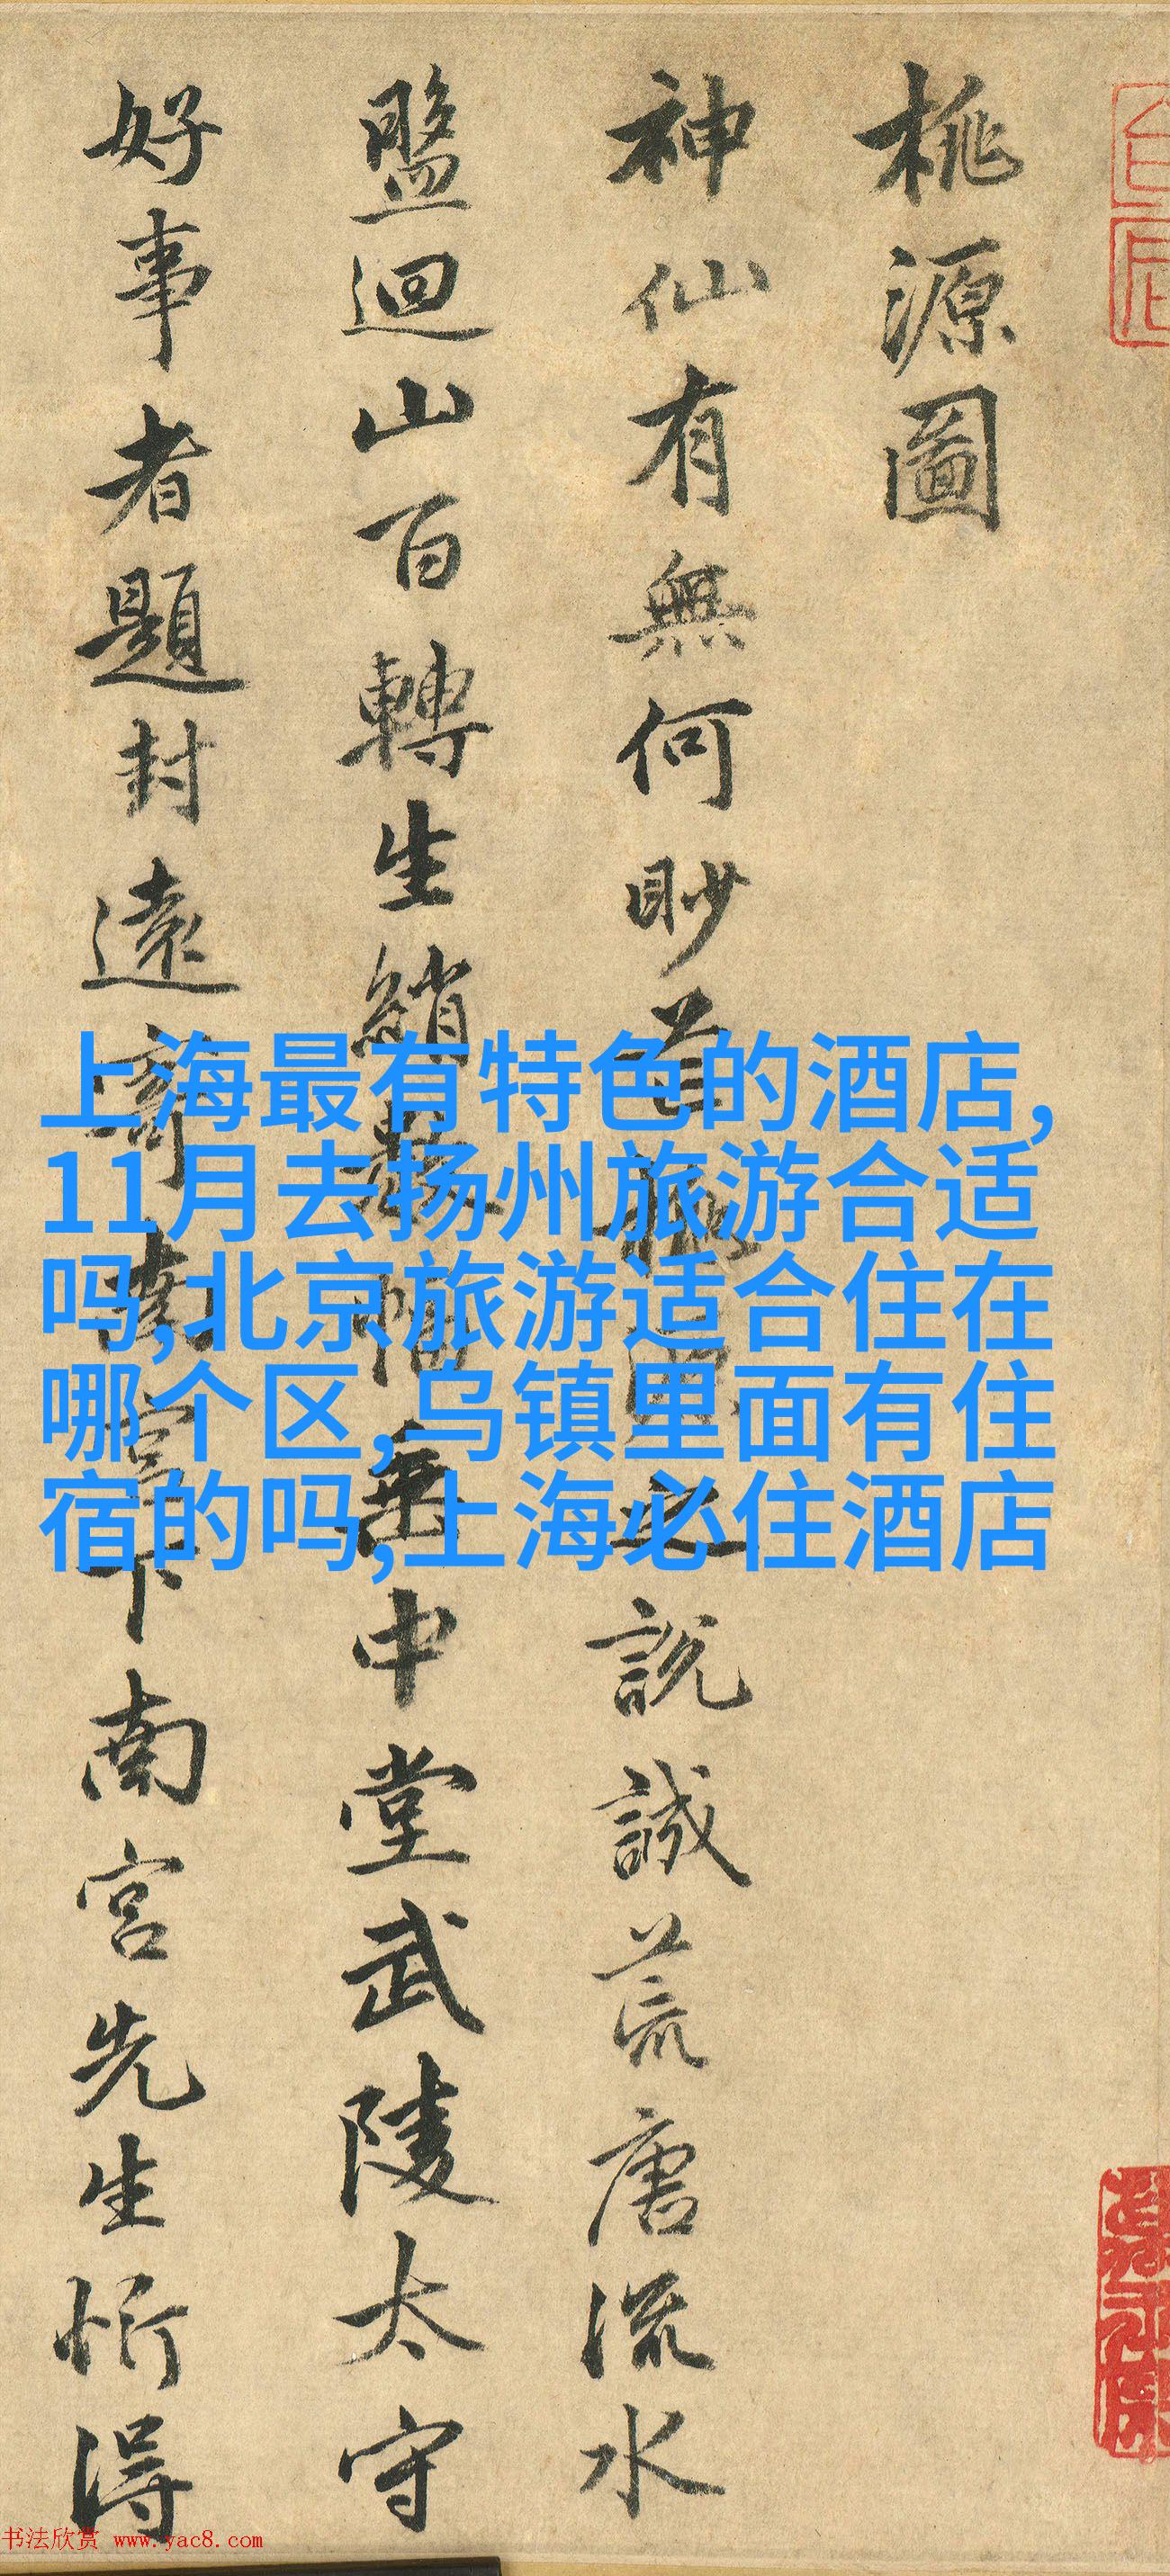 桃源圖
神仙有無何眇芒桃源之說誠荒唐流水
盤迴山百轉生綃數幅垂中堂武陵太守
好事者題封遠寄南宮下南宮先生忻得
上海最有特色的酒店,
11月去扬州旅游合适
吗,北京旅游适合住在
哪个区,乌镇里面有住
宿的吗,上海必住酒店
书法欣赏 www.yac8.com